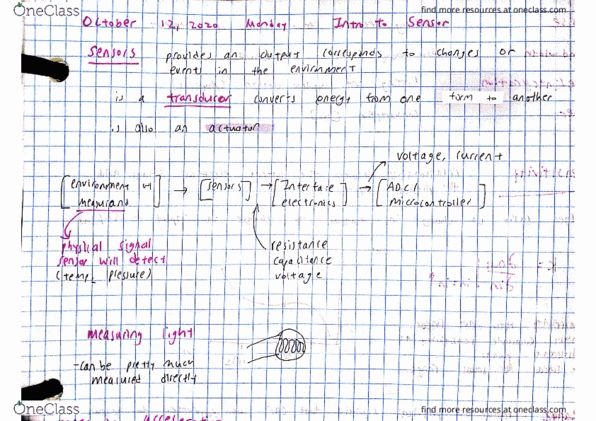 find more resources at oneclass.com
October 12, 2020 Monday Intro to Sensor
Sensors provides an output corresponds to changes or
events in the environment
is a transducer converts energy from one form to another
is also an actuator
voltage, current
[environment w/ measurand] → [sensors] → [Interface electronics] → [ADC/ microcontroller]
physical signal
sensor will detect
(temp, pressure)
resistance
capacitance
voltage
measuring light
-can be pretty much
measured directly
OneClass
find more resources at oneclass.com